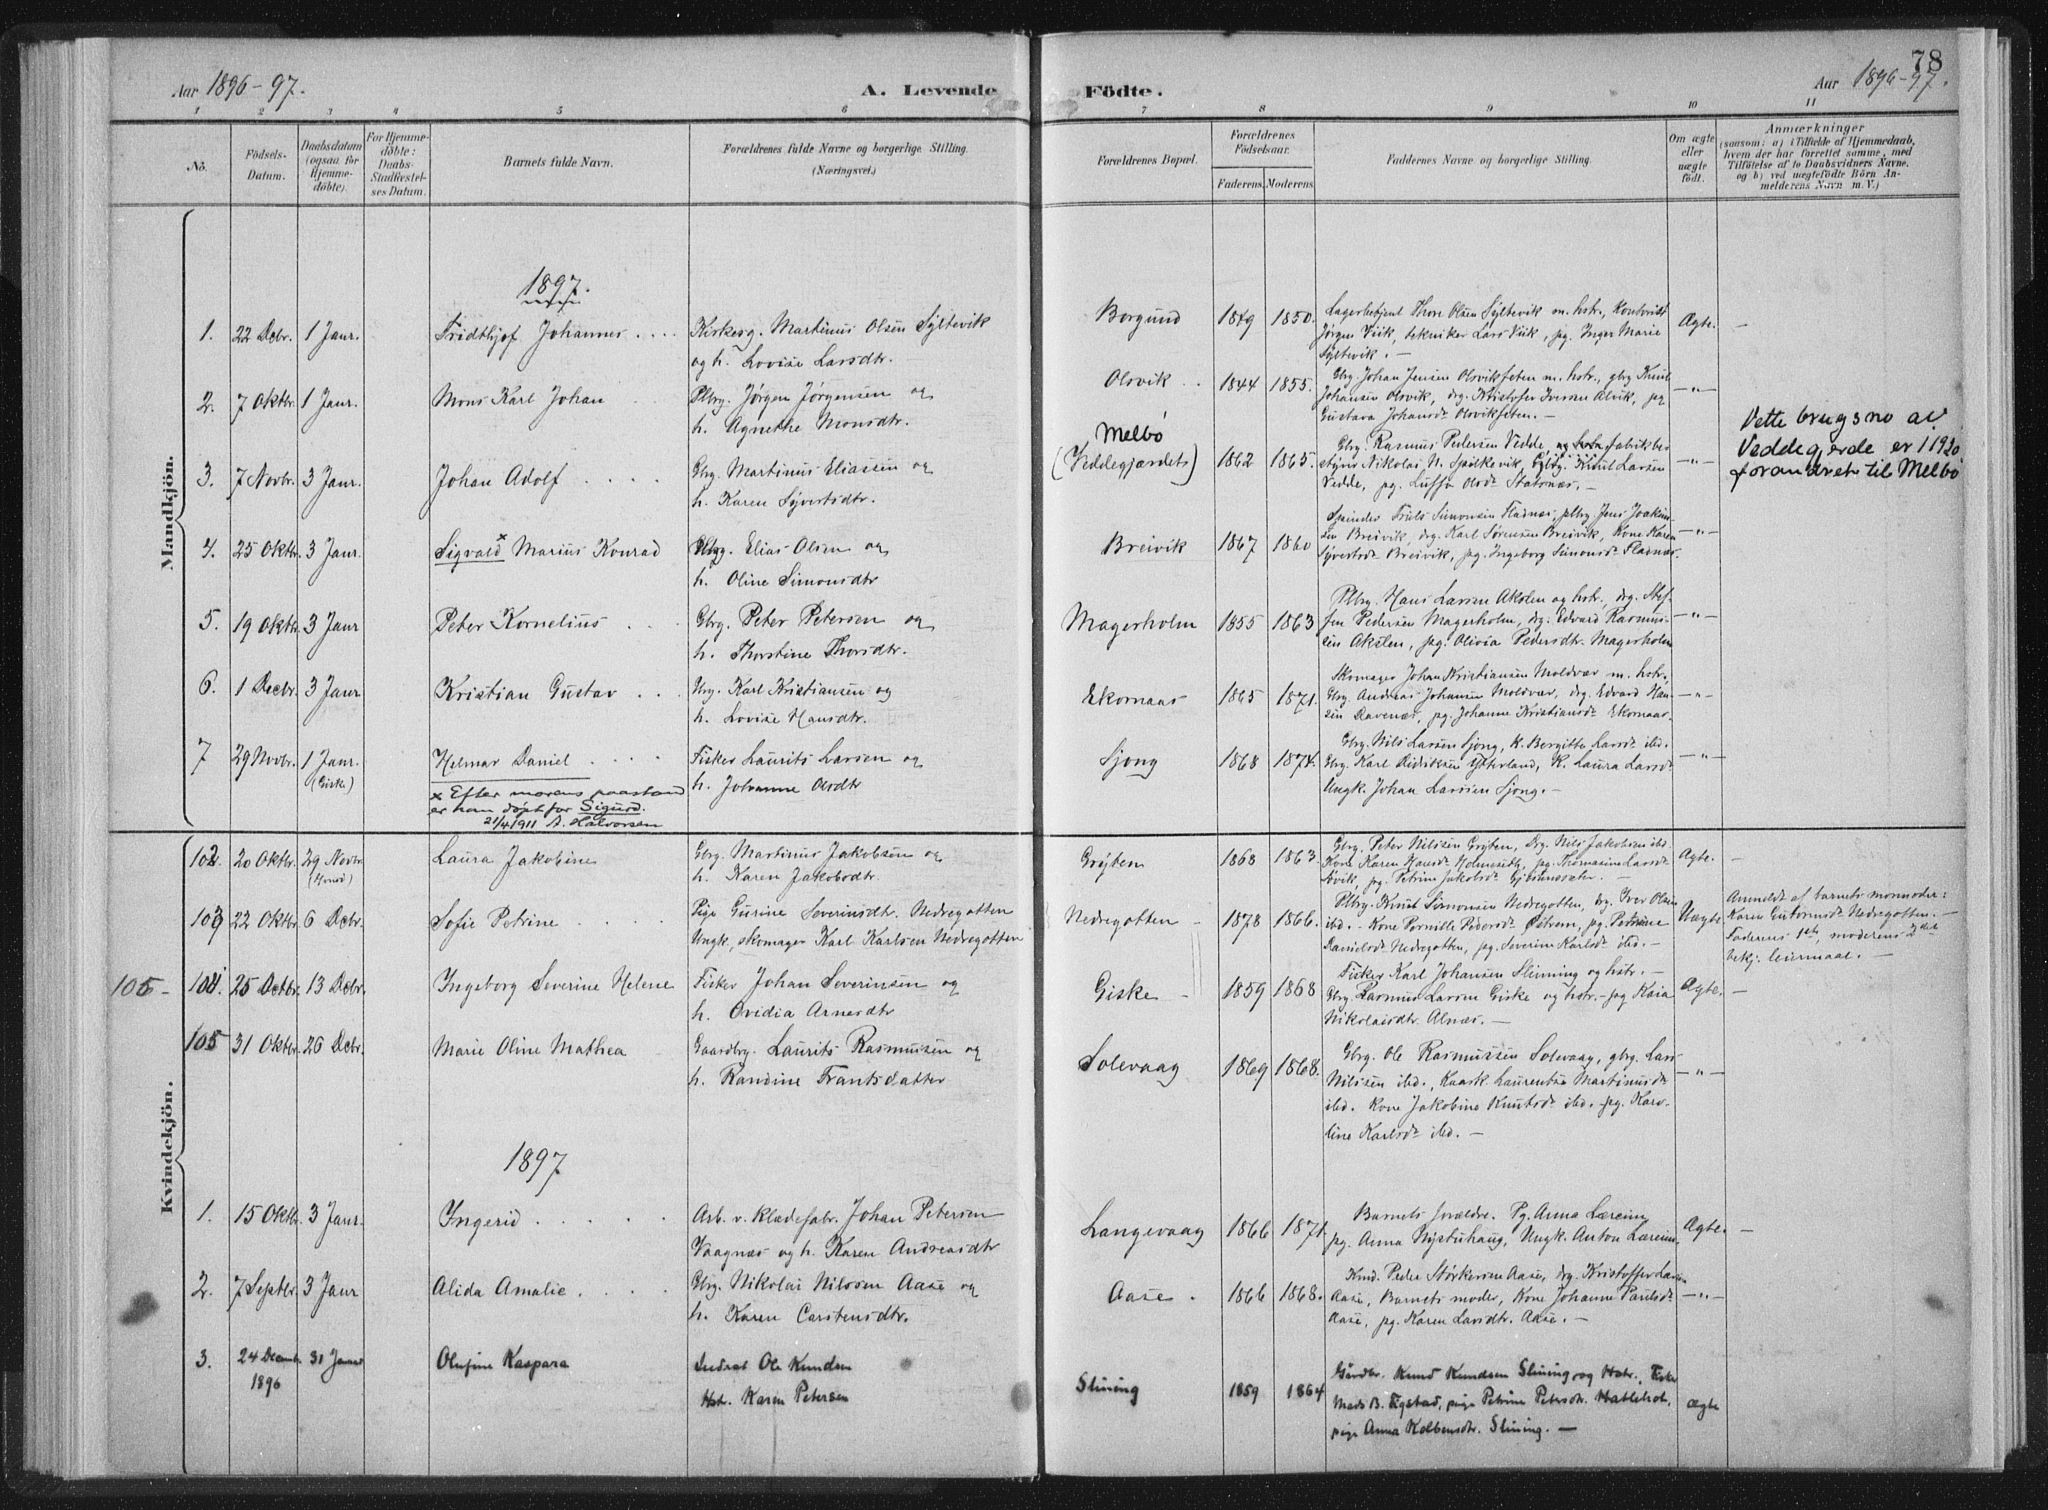 78
Aar 1896-97.
A. Levende
Födte.
Aar 1896-97.
1 2 3 4 5 6 7 8 9 10 11
No.
Födsels-
Datum.
Daabsdatum
(ogsaa for
Hjemme-
döbte).
For Hjemme-
döbte:
Daabs-
Stadfæstel-
ses Datum.
Barnets fulde Navn.
Forældrenes fulde Navne og borgerlige Stilling.
(Næringsvei.)
Forældrenes Bopæl.
Forældrenes
Födselsaar.
Faderens. Moderens.
Faddernes Navne og borgerlige Stilling.
Om ægte
eller
uægte
födt.
Anmærkninger
(saasom: a) i Tilfælde af Hjemmedaab,
hvem der har forrettet samme, med
Tilföielse af to Daabsvidners Navne.
og b) ved uægtefödte Börn An-
melderens Navn m. V.)
Mandkjön.
1897.
1. 22 Decbr. 1 Janr. Fridthjof Johannes Kirkesg. Martinus Olsen Syltevik
og h. Lovise Larsdtr.
Borgund 1849 1850. Lagerbetjent Thore Olsen Syltevik m. hstr., Kontorist
Jørgen Viik, tekniker Lars Viik, pg. Inger Marie
Syltevik. —
Ægte. —
2. 7 Oktbr. 1 Janr. Mons Karl Johan Plbrg. Jørgen Jørgensen og
h. Agnethe Monsdtr.
Olsvik 1844 1855. Gbrg. Johan Jensen Olsviksæten m. hstr., gbrg Knut
Johansen Olsvik, drg. Kristofer Iversen Alvik, pg
Gustava Johansdr Olsviksæten. —
—"—
3. 7 Novbr. 3 Janr. Johan Adolf Gbrg. Martinus Eliassen og
h. Karen Syvertsdtr.
Melbö
(Veddegjærdets) 1862 1865. Gbrg. Rasmus Pedersen Vedde, fabrikbe-
styrer Nikolai N. Spilkevik, Gbrg. Knut Larsen
Vedde, pg. Luffa Olsdr Statsnæs. —
—"—
Dette brugsno av
Veddegjerde er i 1920
forandret til Melbö
4. 25 Oktbr. 3 Janr. Sigvald x Marius Konrad Plbrg. Elias Olsen og
h. Oline Simonsdtr
Breivik 1867 1860 Spinder Truls Simonsen Fladnæs, plbrg Jens Joakim-
sen Breivik, drg. Karl Sørensen Breivik, Kone Karen
Syvertsdr Breivik, pg. Ingeborg Simonsdr Fladnæs.
—"—
5. 19 Oktbr. 3 Janr Peter Kornelius Gbrg. Peter Petersen og
h. Thorstine Thorsdtr.
Magerholm 1855 1863 Plbrg. Hans Larsen Akslen og hstr., drg. Stef-
fen Pedersen Magerholm, drg. Edvard Rasmus-
sen Akslen, pg. Olivia Pedersdtr. Magerholm
—"—
6. 1 Decbr. 3 Janr Kristian Gustav Gbrg. Karl Kristiansen og
h. Lovise Hansdtr.
Ekornaas 1865 1871. Skomager Johan Kristiansen Moldvær m. hstr.,
Gbrg Andreas Johansen Moldvær, drg. Edvard Han-
sen Davenæs, pg. Johanne Kristiansdr Ekornaas.
—"—
7 29 Novbr. 1 Janr. (Giske) Helmar Daniel Fisker Laurits Larsen og
h. Johanne Olsdtr
Sjong 1868 1874. Gbrg. Nils Larsen Sjong, K. Bergitte Larsdr. ibd.
Gbrg. Karl Didriksen Ytterland, K. Laura Larsdr
Ungk. Johan Larsen Sjong. —
—"—
x Efter morens paastand
er han döpt for Sigurd.
21/4 1911 A. Halvorsen
Kvindekjön.
102. 20 Oktbr. 29 Novbr. Laura Jakobine Gbrg. Martinus Jakobsen og
h. Karen Jakobsdtr.
Gryten 1868 1863. Gbrg. Peter Nilsen Gryten, Drg. Nils Jakobsen ibd.
Kone Karen Hansdr Holmeseth, pg. Thomasine Larsdr
pg. Petrine Jakobsdr
Ægte. —
103 22 Oktbr 6 Decbr. Sofie Petrine Pige Gurine Severinsdtr. Nedregotten
Ungk., skomager Karl Karlsen Nedregotten
Nedregotten 1878 1866. Plbrg. Knut Simonsen Nedregotten, drg. Iver Olsen
ibd. — Kone Pernille Pedersdr pg. Petrine
Danielsdr Nedregotten, pg. Severine Karlsdr ibd. —
Uægte
Anmeldt af barnets mormoder:
Karen Guttormsdr Nedregotten. —
Faderens 1ste, moderens 2det
bekj. leiermaal. —
105 — 104. 25 Oktbr. 13 Decbr. Ingeborg Severine Helene Fisker Johan Severinsen og
h. Ovidia Arnesdtr
Giske 1859 1868 Fisker Karl Johansen Slinning og hstr. —
Gbrg Rasmus Larsen Giske og hstr. — pg Kaia
Nikolaisdtr. Alnæs. —
Ægte. —
105 31 Oktbr. 26 Decbr. Marie Oline Mathea Gaardbrg. Laurits Rasmussen og
h. Randine Frantsdatter
Solevaag 1869 1868. Gbrg. Ole Rasmussen Solevaag, gbrg. Lars
Nilssen ibd., Laurentse Martinusdr
ibd. Kone Jakobine Knutsdr ibd. pg. Karo-
line Karlsdr ibd. —
—"—
1897
1. 15 Oktbr. 3 Janr. Ingerid Arb. v. klædefabr. Johan Petersen
Vaagnæs og h. Karen Andreasdtr
Langevaag 1866 1871. Barnets forældre. Pg. Anna Læreim,
pg. Anna Nystuhaug, Ungk. Anton Læreim.
Ægte. —
2. 7 Septbr. 3 Janr Alida Amalie Gbrg. Nikolai Nilssen Aase og
h. Karen Carstensdtr.
Aase 1866 1868. Kmd. Peder Størkersen Aase, drg. Kristoffer Larsen
Aase, Barnets moder, Kone Johanne Paulsdr
Aase, pg. Karen Larsdtr. Aase. —
—"—
3. 24 Decemb. 1896 31 Januar Olufine Kaspara Inderst Ole Knudsen
Hstr. Karen Petersen
Slining 1859 1864 Gårdbr. Knud Knudsen Slining og Hstr., Fisker
Mads B. Figstad, pige Petrine Petersdtr. Hatlehol,
pige Anna Kolbensdtr. Slining. —
ægte